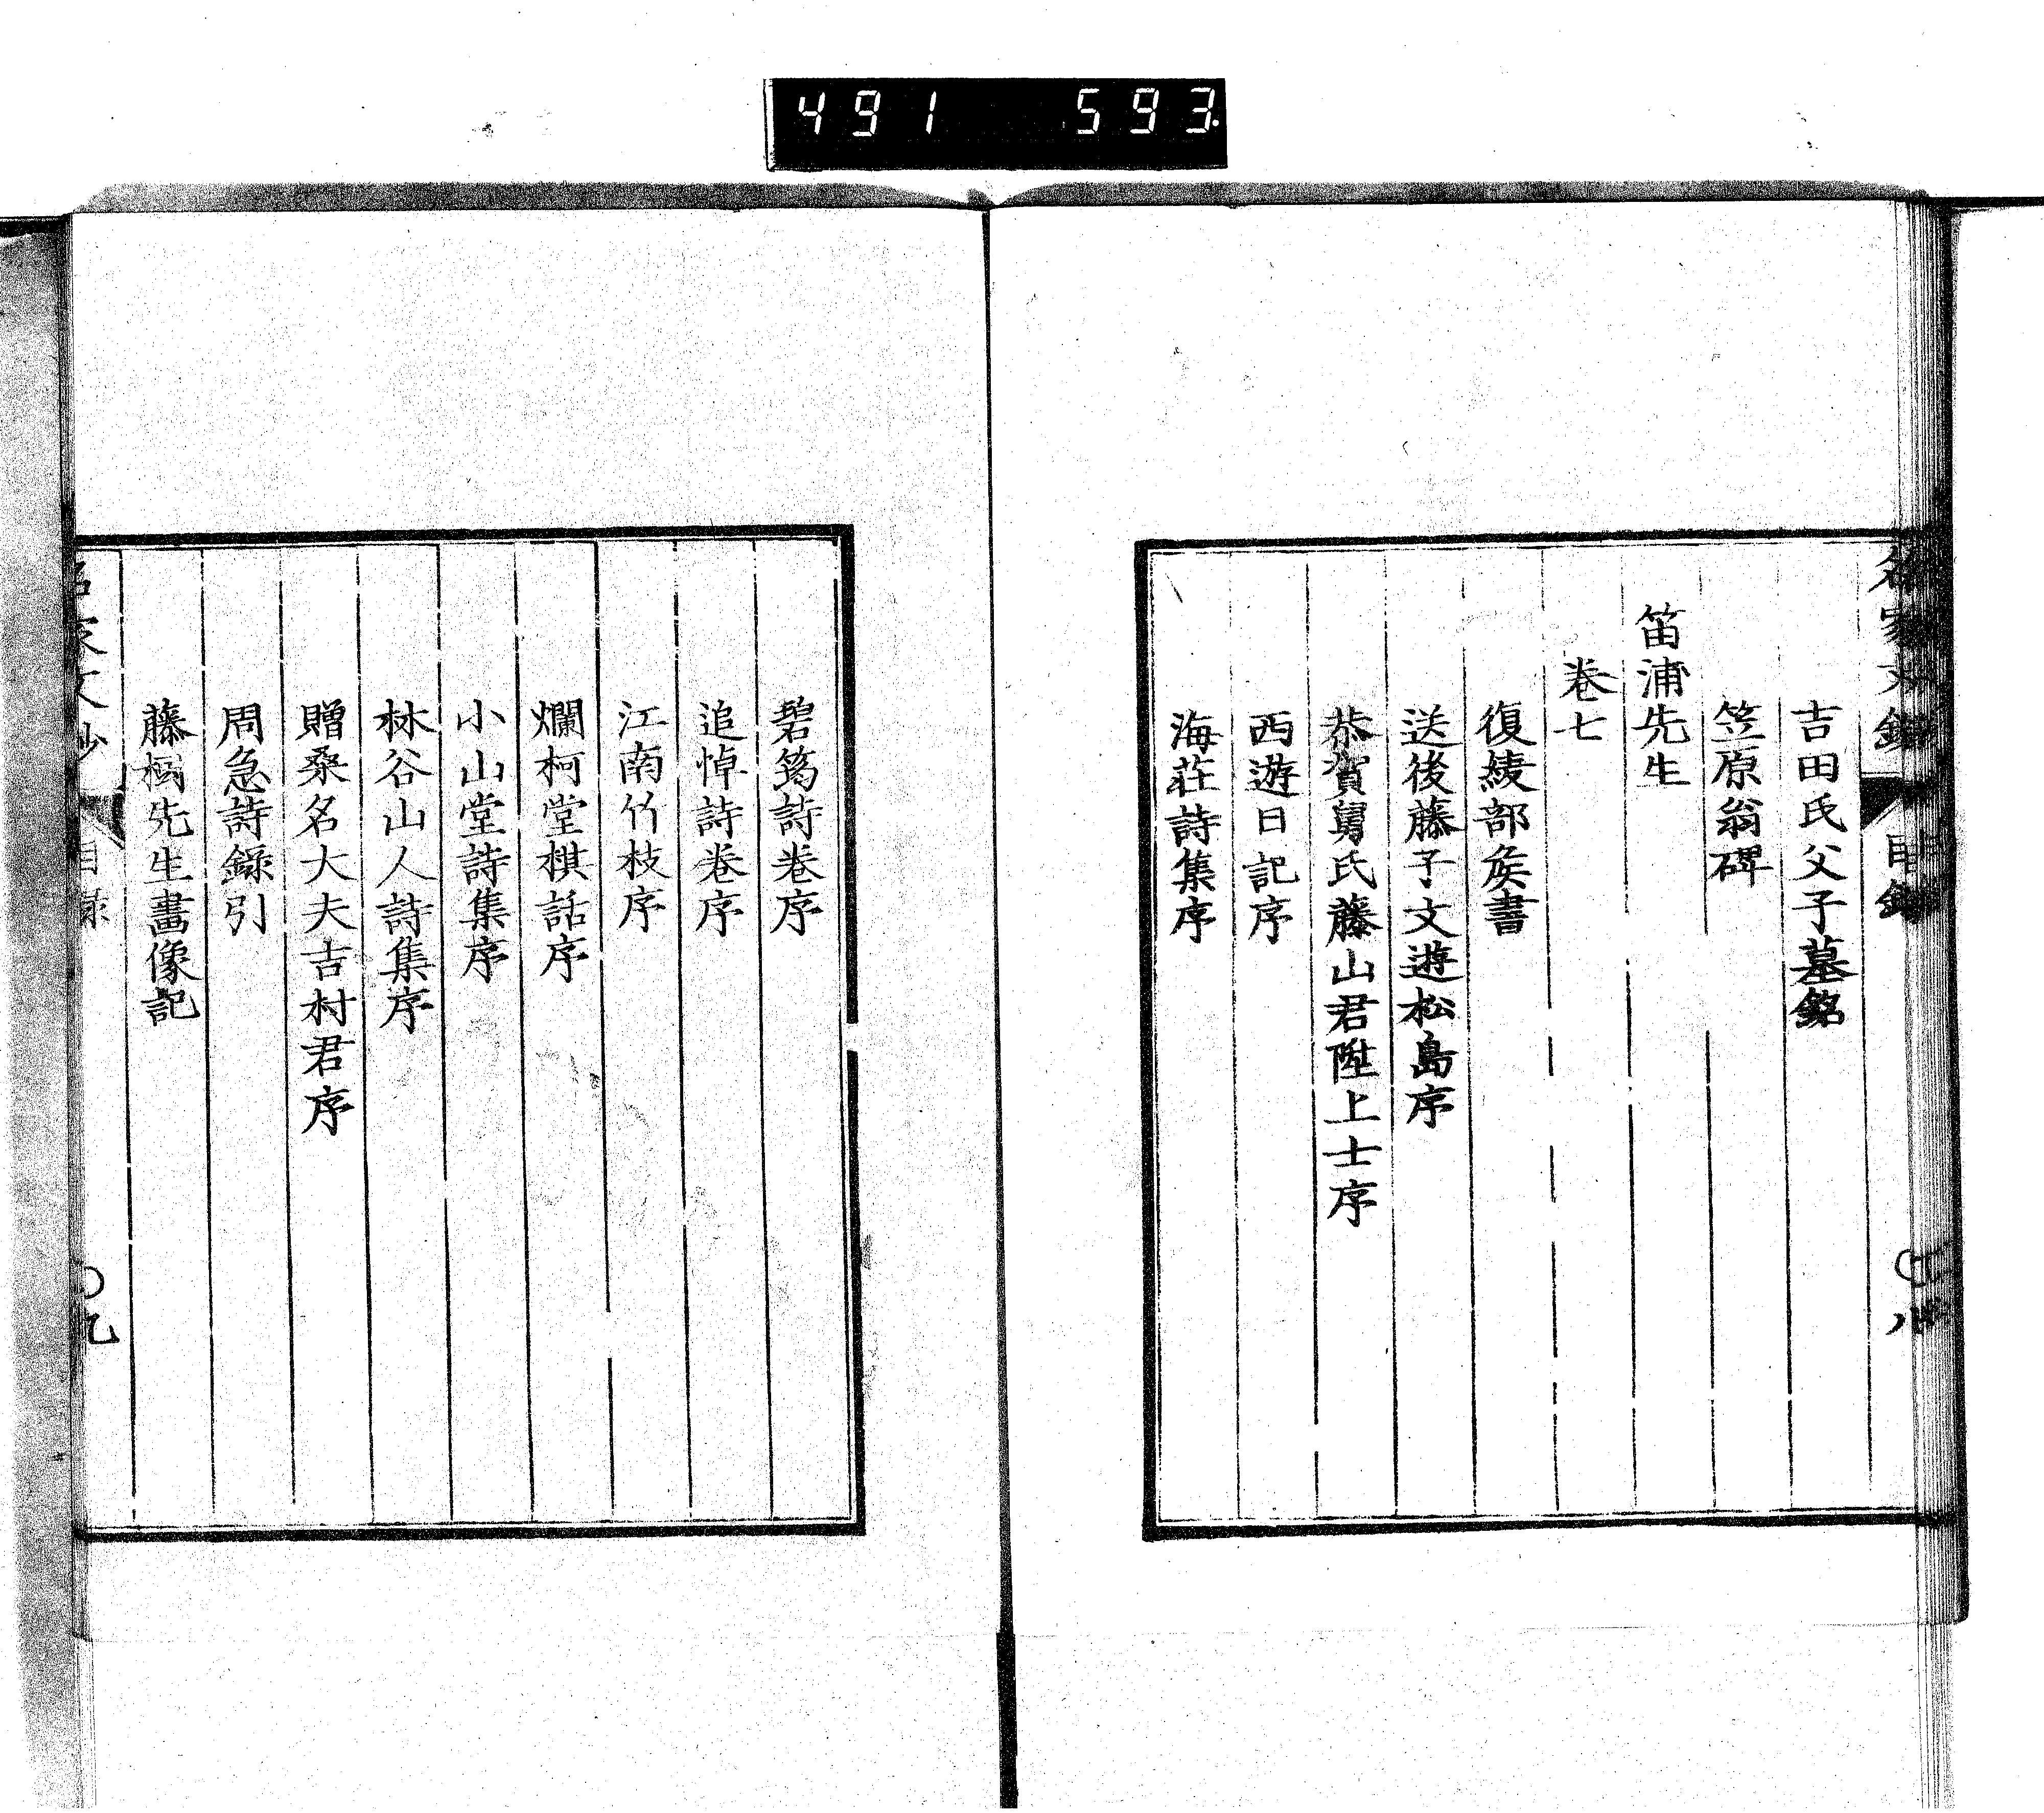 491 593
吉田氏父子墓銘
笠原翁碑
笛浦先生
卷七
復綾部矦書
送後藤子文遊松島序
恭賀舅氏藤山君陞上士序
西遊日記序
海莊詩集序
碧筠詩卷序
追悼詩卷序
江南竹枝序
爛柯堂棋話序
小山堂詩集序
林谷山人詩集序
贈桑名大夫吉村君序
周急詩錄引
藤先生畫像記
文鈔
目錄
九